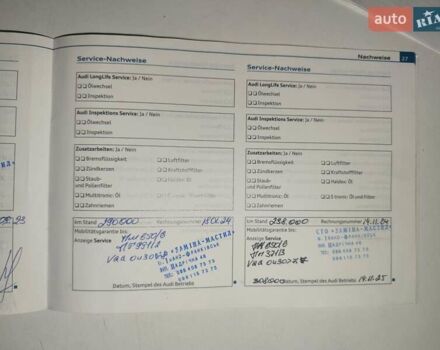 auto RIA
Nachweise 27
Service-Nachweise
Audi LongLife Service: Ja / Nein
Ölwechsel
Inspektion
Audi Inspektions Service: Ja / Nein
Ölwechsel
Inspektion
Zusatzarbeiten: Ja / Nein
Bremsflüssigkeit
Luftfilter
Zündkerzen
Kraftstofffilter
Staub- und Pollenfilter
Haldex: Öl
Multitronic: Öl
Zahnriemen
km Stand 290.000 Rechnungsnummer 15.01.24
Mobilitätsgarantie bis:
Anzeige Service
"ЗАМІНА-МАСТИЛ"
Datum, Stempel des Audi Betriebs
Service-Nachweise
Audi LongLife Service: Ja / Nein
Ölwechsel
Inspektion
Audi Inspektions Service: Ja / Nein
Ölwechsel
Inspektion
Zusatzarbeiten: Ja / Nein
Bremsflüssigkeit
Luftfilter
Zündkerzen
Kraftstofffilter
Staub- und Pollenfilter
Haldex: Öl
Multitronic: Öl
S tronic: Öl und Filter
Zahnriemen
km Stand 298.000 Rechnungsnummer 19.11.24
Mobilitätsgarantie bis:
Anzeige Service
СТО "ЗАМІНА-МАСТИЛ"
308.000 19.11.25
Datum, Stempel des Audi Betriebs